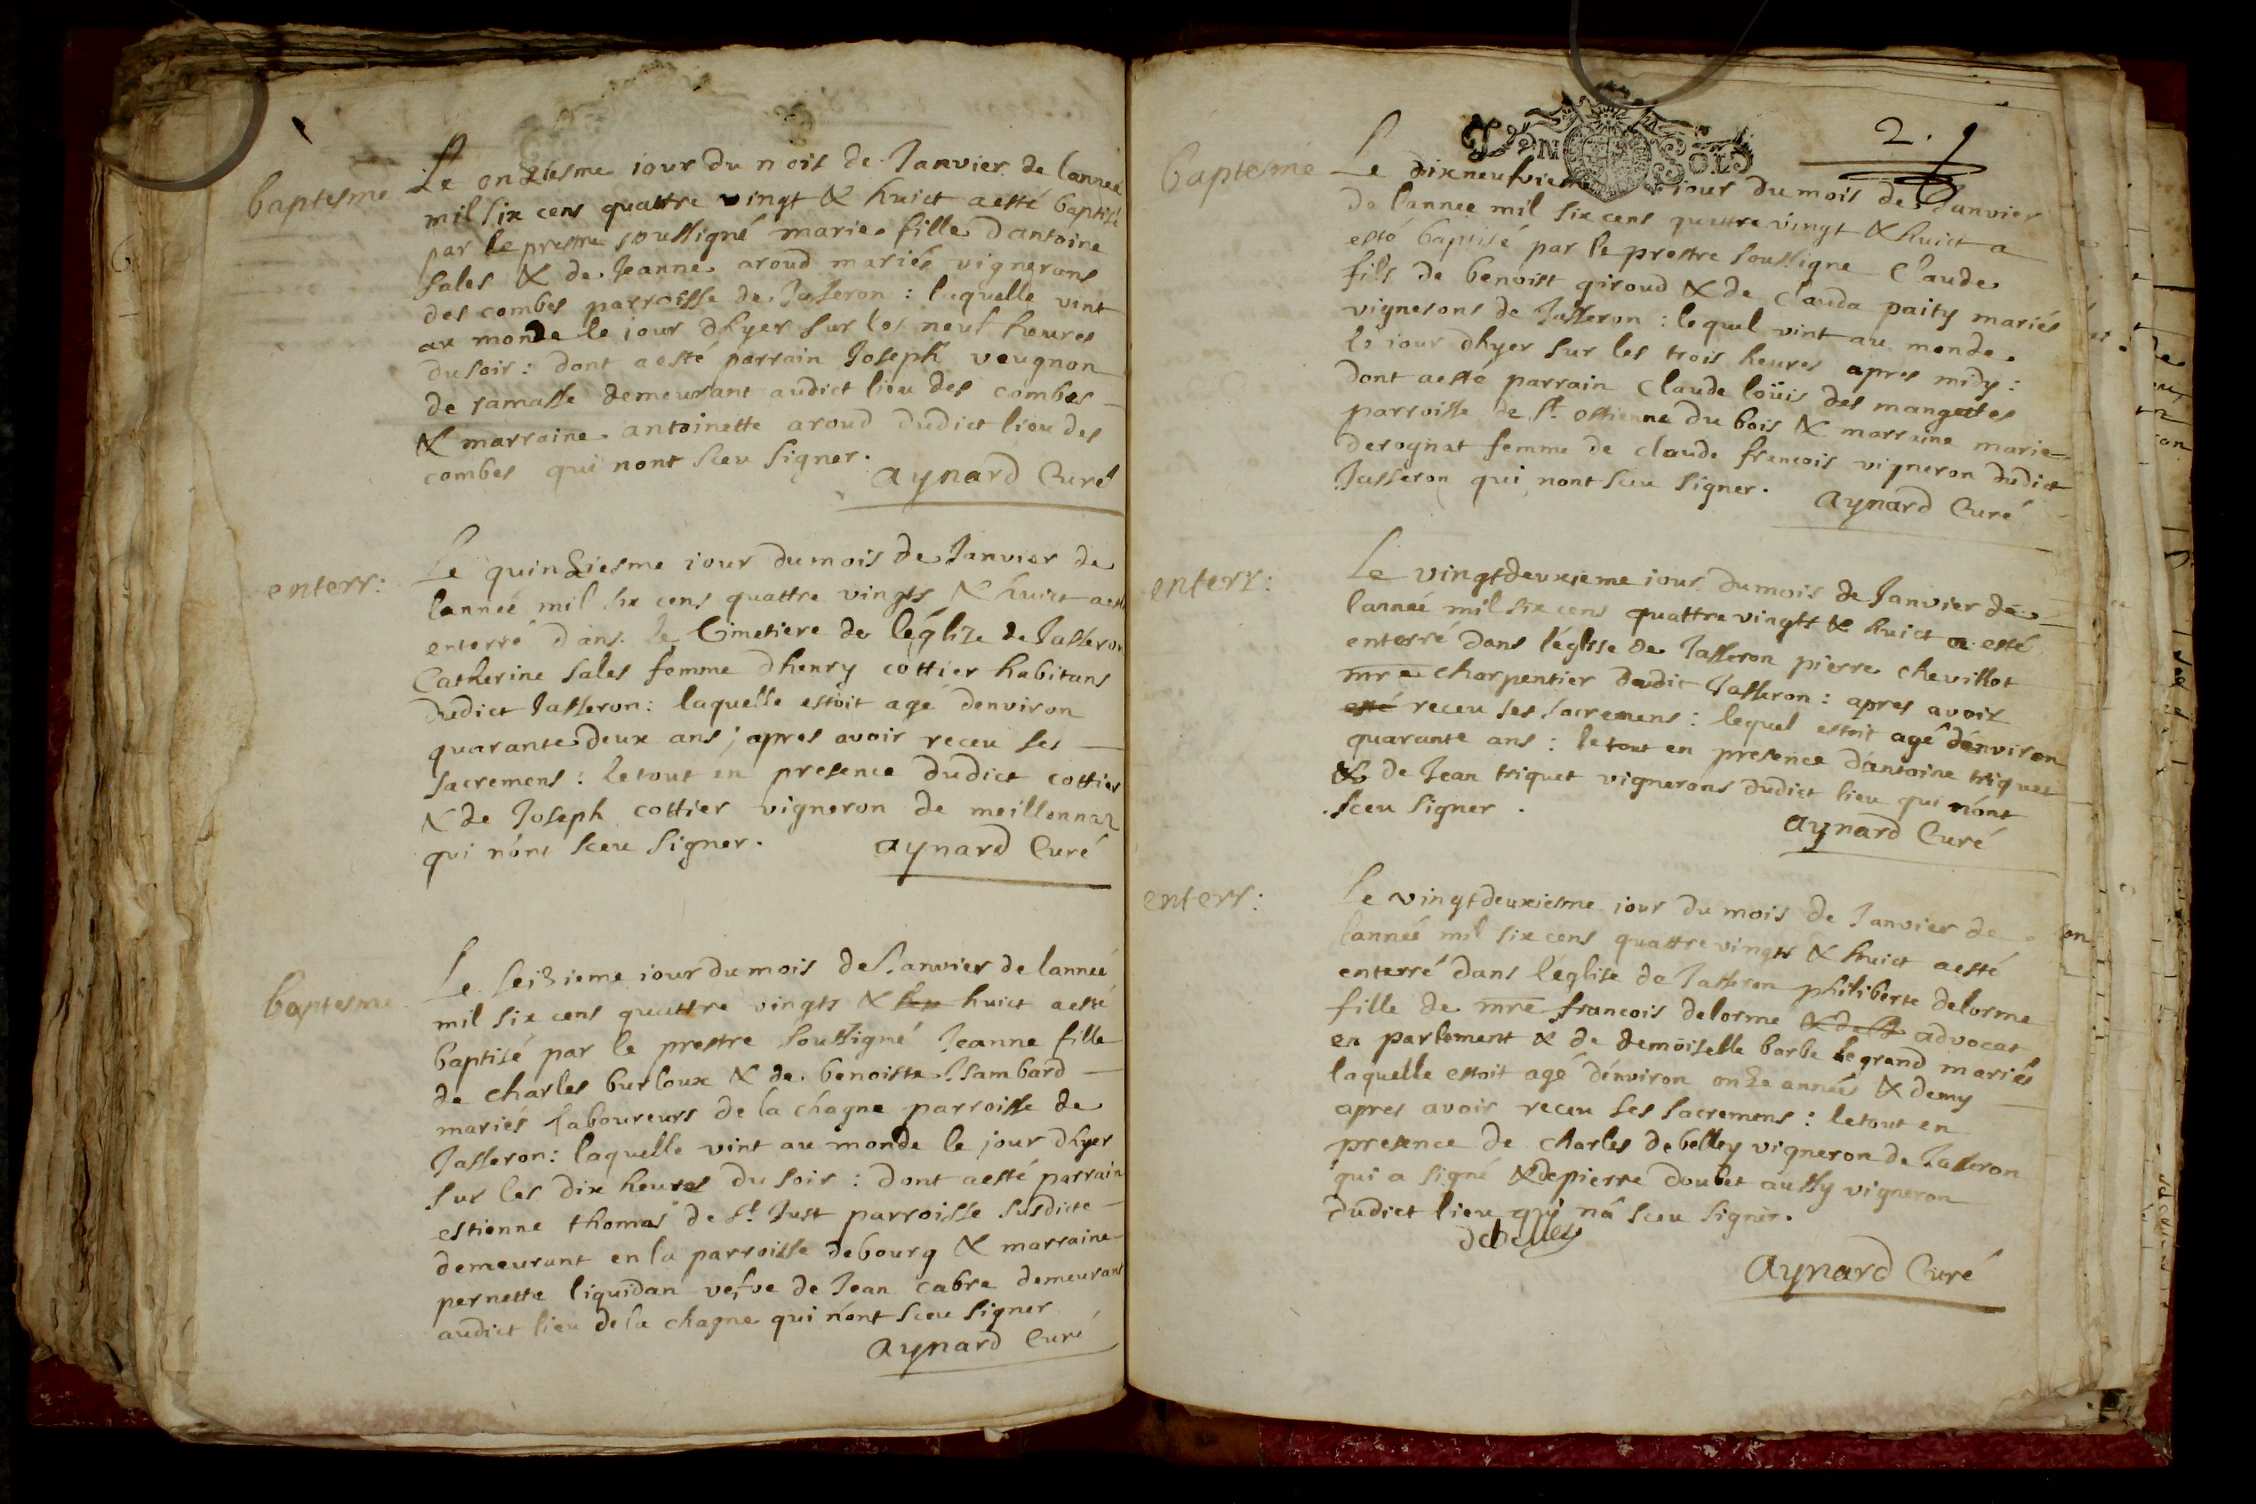 baptesme
Le onziesme iour du mois de Janvier de lannee
mil six cens quattre vingt & huict a esté baptisé
par le prestre soussigné marie fille dantoine
sales & de Jeanne aroud mariés vignerons
des combes parroisse de Jasseron : laquelle vint
au monde le iour dhyer sur les neuf heures
du soir : dont a esté parrain Joseph vougnon
de ramasse demeurant audict lieu des combes
& marraine antoinette aroud dudict lieu des
combes qui nont sceu signer.
aynard Curé
enterr:
Le quinziesme iour du mois de Janvier de
lanneé mil six cens quattre vingts & huict a esté
enterré dans le Cimetiere de léglize de Jasseron
Catherine sales femme dhenry cottier habitans
dudict Jasseron : laquelle estoit agé denviron
quarante deux ans ; apres avoir receu ses
sacremens : le tout en presence dudict cottier
& de Joseph cottier vigneron de meillonnaz
qui nónt sceu signer.
aynard Curé
baptesme
Le seizieme iour du mois de Janvier de lanneé
mil six cens quattre vingts & huict a esté
baptisé par le prestre soussigné Jeanne fille
de charles burloux & de benoiste Isambard
mariés laboureurs de la chagne parroisse de
Jasseron : laquelle vint au monde le jour dhyer
sur les dix heures du soir : dont a esté parrain
estienne thomas de st Just parroisse susdicte
demeurant en la parroisse de bourg & marraine
pernette liquidan vefve de Jean cabre demeurant
audict lieu de la chagne qui nónt sceu signer
aynard Curé
2.
GEN SOLS
baptesme
Le dixneufvieme iour du mois de Janvier
de lannee mil six cens quattre vingt & huict a
esté baptisé par le prestre soussigne Claude
fils de benoist giroud & de clauda paity mariés
vignerons de Jasseron : lequel vint au monde
le iour dhyer sur les trois heures apres midy :
dont a esté parrain Claude loüis des mangettes
parroisse de st. estienne du bois & marraine marie
derognat femme de claude francois vigneron dudict
Jasseron qui nont sceu signer.
aynard Curé
enterr:
Le vingtdeuxieme iour du mois de Janvier de
lanneé mil six cens quattre vingts & huict a esté
enterré dans léglise de Jasseron pierre chevillot
mre charpentier dudict Jasseron : apres avoir
esté receu ses sacremens : lequel estoit agé dénviron
quarante ans : le tout en presence dántoine triquet
& de Jean triquet vignerons dudict lieu qui nónt
sceu signer.
aynard Curé
enterr:
Le vingtdeuxiesme iour du mois de Janvier de
lanneé mil six cens quattre vingts & huict a esté
enterré dans léglise de Jasseron philiberte delorme
fille de mre francois delorme advocat
en parlement & de demoiselle barbe le grand mariés
laquelle estoit agé dénviron onze anneés & demy
apres avoir receu ses sacremens : le tout en
presence de charles de belley vigneron de Jasseron
qui a signé & de pierre doubet aussy vigneron
dudict lieu qui ná sceu signer.
debelley
aynard Curé